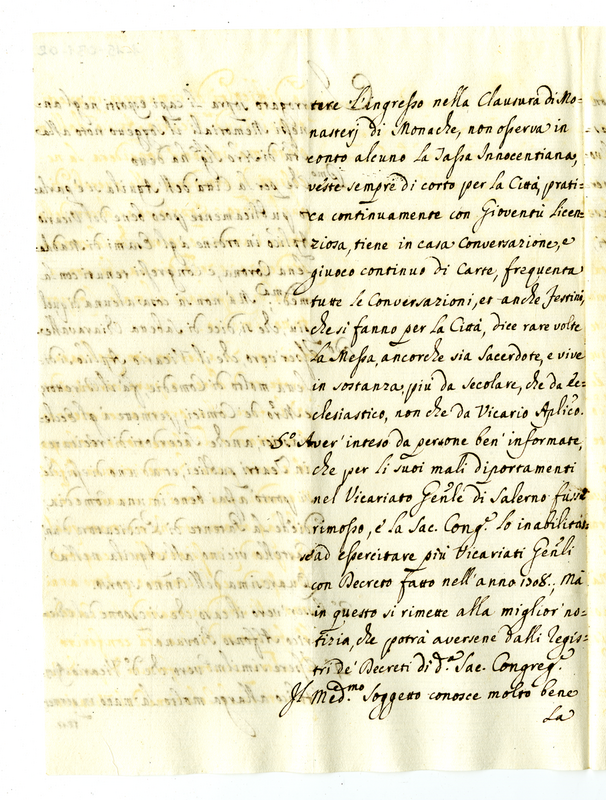 tare L'ingresso nella Clausura di Mo=
nasterj di Monache, non osserva in
conto alcuno La Tassa Innocentiana,
veste sempre di corto per la Città, prati=
ca continuamente con Gioventù Licen=
ziosa, tiene in casa Conversazione, e
giuoco continuo di Carte, frequenta
tutte le Conversazioni, et anche festini,
che si fanno per la Città, dice rare volte
La Messa, ancorche sia Sacerdote, e vive
in sostanza, più da secolare, che da Ec=
clesiastico, non che da Vicario Aplico.
5.º Aver' inteso da persone ben' informate,
che per li suoi mali diportamenti
nel Vicariato Genle di Salerno fusse
rimosso, e la Sac. Cong.e lo inabilitas=
se ad essercitare più Vicariati Genli
con Decreto fatto nell' anno 1708.; Mà
in questo si rimette alla miglior' no=
tizia, che potrà aversene dalli Regis=
tri de' Decreti di d.a Sac. Congreg.e
Il Med.mo Soggetto conosce molto bene
La